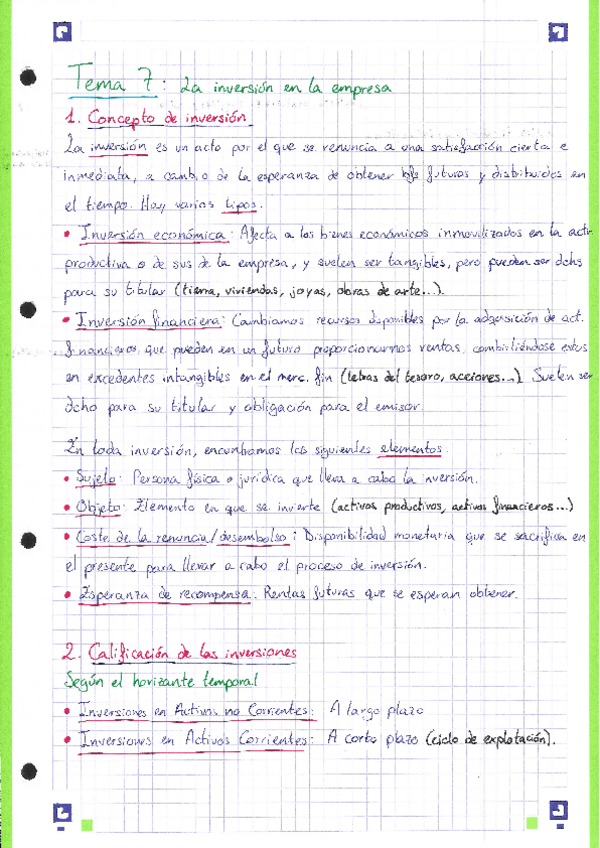 Tema 7: La inversión en la empresa
1. Concepto de inversión
La inversión es un acto por el que se renuncia a una satisfacción cierta e
inmediata, a cambio de la esperanza de obtener bfs futuros y distribuidos en
el tiempo. Hay varios tipos.
• Inversión económica: Afecta a los bienes económicos inmovilizados en la actv
productiva o de sus de la empresa, y suelen ser tangibles, pero pueden ser dchs
para su titular (tierra, viviendas, joyas, obras de arte...).
• Inversión financiera: Cambiamos recursos disponibles por la adquisición de act.
financieros que pueden en un futuro proporcionarnos rentas, combirtiéndose estos
en excedentes intangibles en el merc. fin (letras del tesoro, acciones...) Suelen ser
dcho para su titular y obligación para el emisor.
En toda inversión, encontramos los siguientes elementos.
• Sujeto: Persona física o jurídica que lleva a cabo la inversión.
• Objeto: Elemento en que se invierte (activos productivos, activos financieros...)
• Coste de la renuncia/desembolso: Disponibilidad monetaria que se sacrifica en
el presente para llevar a cabo el proceso de inversión.
• Esperanza de recompensa: Rentas futuras que se esperan obtener.
2. Calificación de las inversiones
Según el horizonte temporal
• Inversiones en Activos no Corrientes: A largo plazo
• Inversiones en Activos Corrientes: A corto plazo (ciclo de explotación).